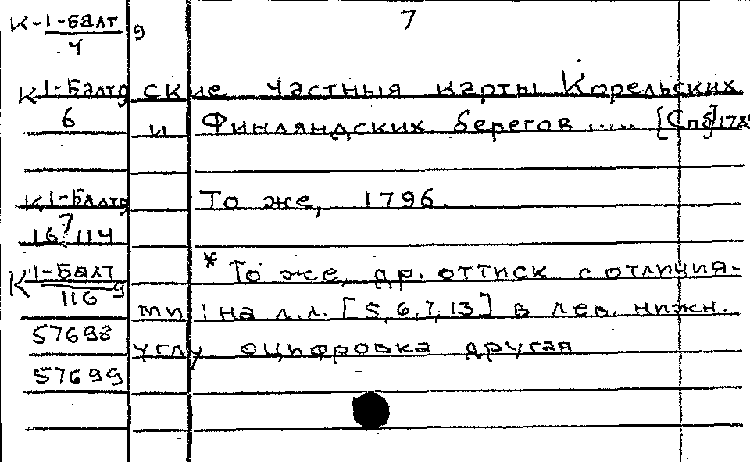 К-1-Балт 9 7
4
К 1-Балт 9 ские частныя карты Корельских
6 и Финляндских берегов ..... [Спб]
К 1-Балт 9 То же, 1796.
7
16 114
К 1-Балт 9 * То же, др. оттиск с отличия-
116 ми: на л.л. [5, 6, 7, 13] в лев. нижн.
57698 углу оцифровка другая
57699